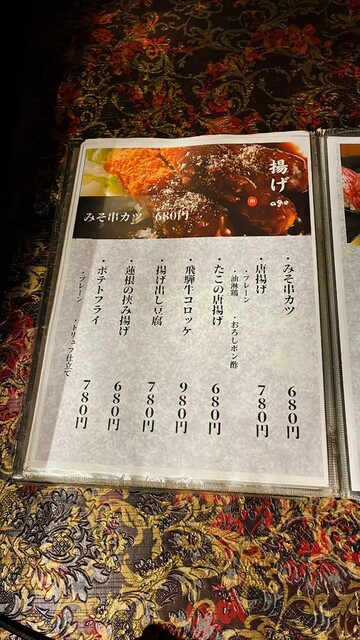 揚げ
age
みそ串カツ 680円
・みそ串カツ 680円
・唐揚げ 780円
・プレーン ・おろしポン酢
・油淋鶏
・たこの唐揚げ 680円
・飛騨牛コロッケ 980円
・揚げ出し豆腐 780円
・蓮根の挟み揚げ 680円
・ポテトフライ 780円
・プレーン ・トリュフ仕立て